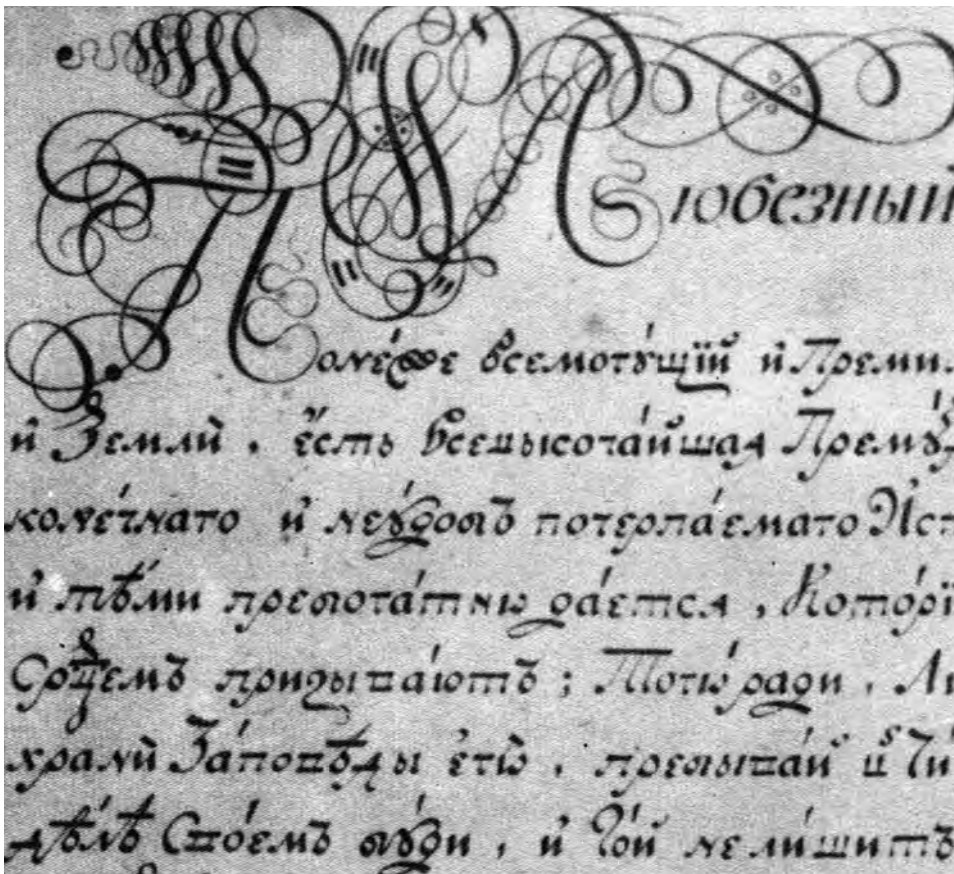 Любезный
Поне́же всемогꙋ́щїй и Преми
и҆ Земли̑. є҆́сть Всевысоча́йшаѧ Премꙋ́
коне́чнаго и҆ неꙋ́добь почерпа́емаго Ист
и҆ тѣ́ми пребога́тнѡ дае́тсѧ, Кото́рї
Срⷣцемъ призыва́ютъ; Тогѡ̀ ради,
храни̑ За́повѣды є҆гѡ̀, пребыва́й в
дѣ́лѣ Своемъ бꙋ́ди, и҆ То́й не лиши́тъ